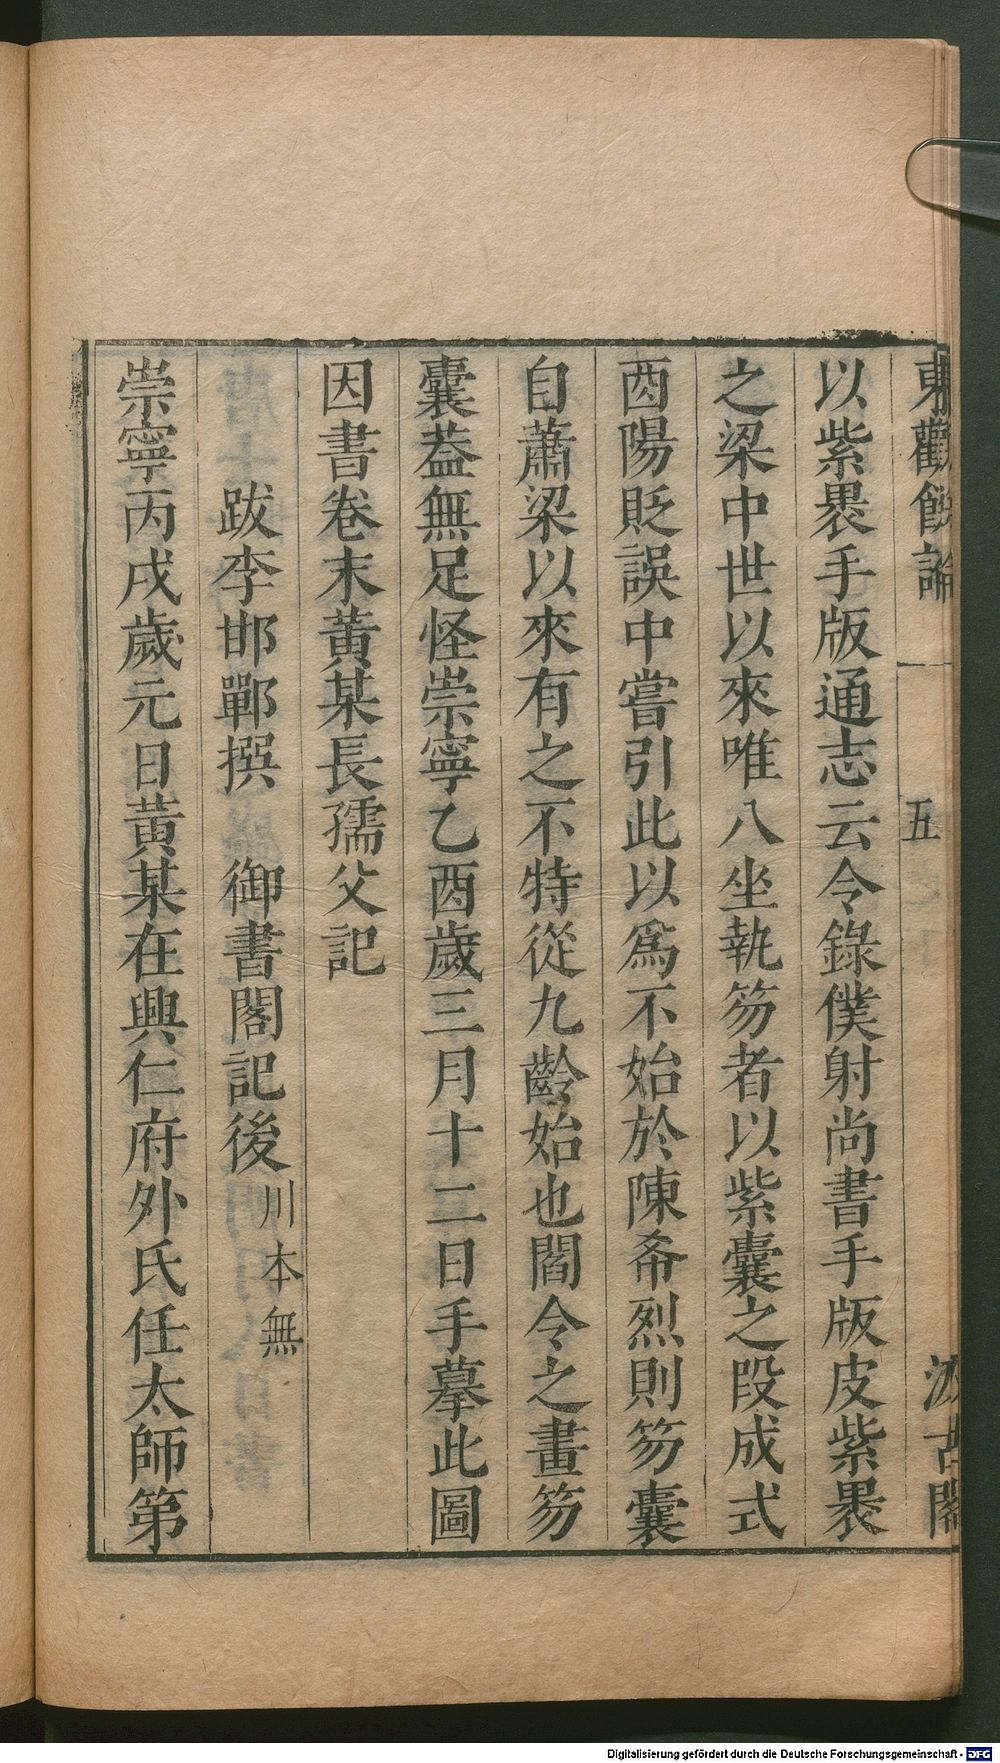 東觀餘論
五
汲古閣
以紫褁手版通志云令錄僕射尚書手版皮紫褁
之梁中世以來唯八坐執笏者以紫囊之段成式
酉陽貶誤中嘗引此以爲不始於陳希烈則笏囊
自蕭梁以來有之不特從九齡始也閻令之畫笏
囊葢無足怪崇寧乙酉歲三月十二日手摹此圖
因書卷末黃某長孺父記
跋李邯鄲撰 御書閣記後 川本無
崇寧丙戌歲元日黃某在興仁府外氏任太師第
Digitalisierung gefördert durch die Deutsche Forschungsgemeinschaft - DFG